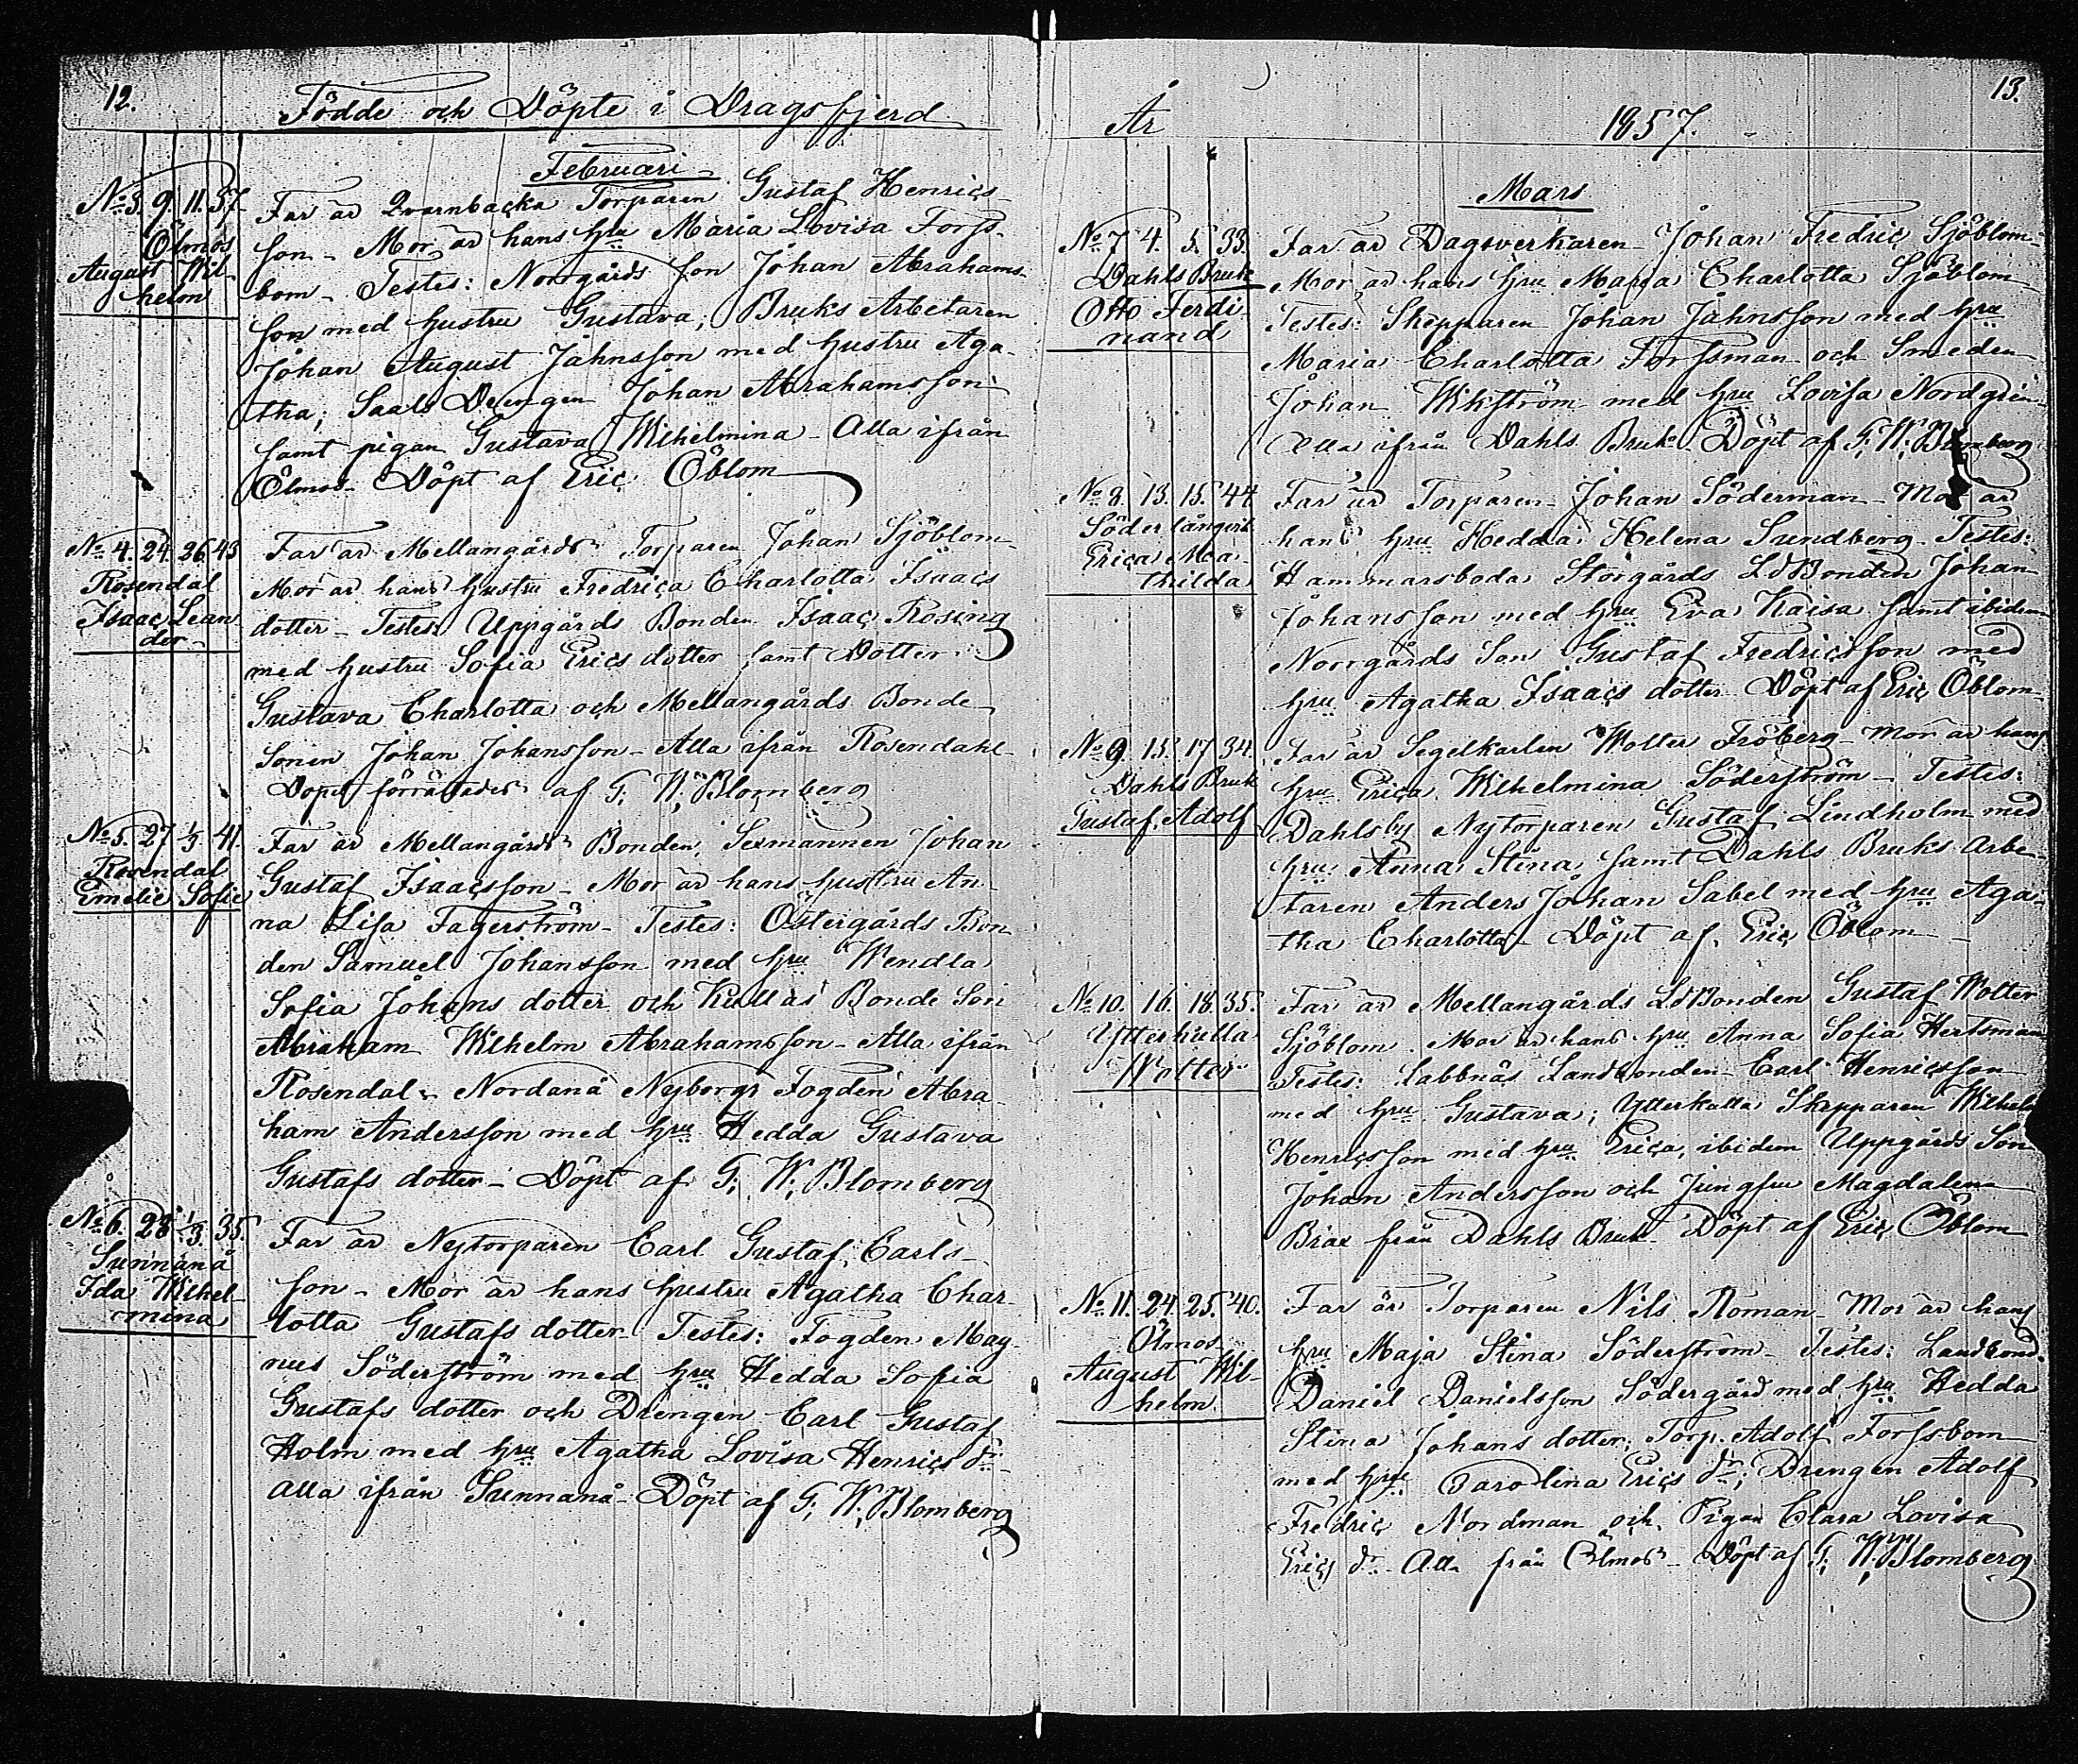 12.
Födde och Döpte i Dragsfjerd
Februari
No 3. 9. 11. 37.
Ölmos
August Wil-
helm
Far är Qvarnbacka Torparen Gustaf Henrics-
son - Mor är hans hru Maria Lovisa Forss-
bom - Testes: Norrgårds son Johan Abrahams-
son med hustru Gustava; Bruks Arbetaren
Johan August Jahnsson med hustru Aga-
tha; Saals Drengen Johan Abrahamsson
samt pigan Gustava Wilhelmina - Alla ifrån
Ölmos - Döpt af Eric Öblom
No 4. 24. 26. 43
Rosendal
Isaac Lean
der
Far är Mellangårds Torparen Johan Sjöblom -
Mor är hans hustru Fredrica Charlotta Isaacs
dotter - Testes: Uppgårds Bonden Isaac Rosing
med hustru Sofia Erics dotter samt Dotter
Gustava Charlotta och Mellangårds Bonde
Sonen Johan Johansson - Alla ifrån Rosendahl
Dopet förrättades af F. W. Blomberg
No 5. 27. 1/3. 41.
Rosendal
Emelie Sofie
Far är Mellangårds Bonden, Sexmannen Johan
Gustaf Isaacsson - Mor är hans hustru An-
na Lisa Fagerström - Testes: Östergårds Bon
den Samuel Johansson med hru Wendla
Sofia Johans dotter och Kullas Bonde Son
Abraham Wilhelm Abrahamsson - Alla ifrån
Rosendal - Nordanå Nyborgs Fogden Abra-
ham Andersson med hru Hedda Gustava
Gustafs dotter - Döpt af F. W. Blomberg
No 6. 28. 1/3. 35.
Sunnanå
Ida Wilhel-
mina
Far är Nytorparen Carl Gustaf Carls-
son - Mor är hans hustru Agatha Char-
lotta Gustafs dotter - Testes: Fogden Mag-
nus Söderström med hru Hedda Sofia
Gustafs dotter och Drengen Carl Gustaf
Holm med hru Agatha Lovisa Henrics dr -
Alla ifrån Sunnanå - Döpt af F. W. Blomberg
13.
År 1857.
Mars
No 7. 4. 5. 33.
Dahls Bruk
Otto Ferdi-
nand
Far är Dagsverkaren Johan Fredric Sjöblom -
Mor är hans hru Maria Charlotta Sjöblom
Testes: Skepparen Johan Jahnsson med hru
Maria Charlotta Forssman och Smeden
Johan Wikström med hru Lovisa Nordgrén
Alla ifrån Dahls Bruk - Döpt af F. W. Blomberg
No 8. 13. 15. 44.
Söderlångvik
Erica Ma-
thilda
Far är Torparen Johan Söderman - Mor är
hans hru Hedda Helena Sundberg - Testes:
Hammarsboda Storgårds LdBonden Johan
Johansson med hru Eva Kaisa samt ibidem
Norrgårds Son Gustaf Fredricsson med
hru Agatha Isaacs dotter - Döpt af Eric Öblom
No 9. 15. 17. 34.
Dahls Bruk
Gustaf Adolf
Far är Segelkarlen Wolter Fröberg - Mor är hans
hru Erica Wilhelmina Söderström - Testes:
Dahlsby Nytorparen Gustaf Lindholm med
hru Anna Stina samt Dahls Bruks Arbe-
taren Anders Johan Sabel med hru Aga-
tha Charlotta - Döpt af Eric Öblom
No 10. 16. 18. 35.
Ytterkulla
Wolter
Far är Mellangårds LdBonden Gustaf Wolter
Sjöblom. Mor är hans hru Anna Sofia Hertsman
Testes: Labbnäs Landbonden Carl Henricsson
med hru Gustava; Ytterkulla Skepparen Wilhelm
Henricsson med hru Erica, ibidem Uppgårds Son
Johan Andersson och Jungfru Magdalena
Brax från Dahls Bruk - Döpt af Eric Öblom
No 11. 24. 25. 40.
Ölmos
August Wil-
helm
Far är Torparen Nils Roman - Mor är hans
hru Maja Stina Söderström - Testes: Landbond.
Daniel Danielsson Södergård med hru Hedda
Stina Johans dotter; Torp. Adolf Forssbom
med hru Carolina Erics dr; Drengen Adolf
Fredric Nordman och Pigan Clara Lovisa
Erics dr - Alla från Ölmos - Döpt af F. W. Blomberg